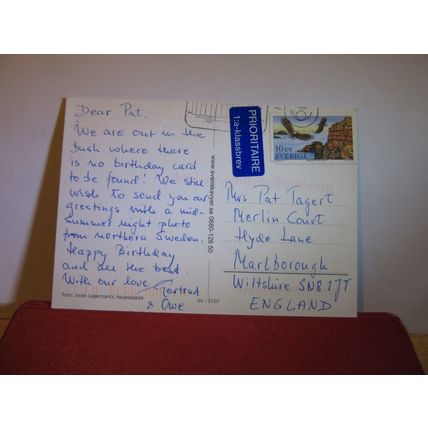 Dear Pat,
We are out in the
bush where there
is no birthday card
to be found! We still
wish to send you our
greetings with a mid-
summer night photo
from northern Sweden.
Happy Birthday
and all the best.
With our love, Gertrud
& Owe
Foto: Jocke Lagercrantz, Härjedalsbild
SV - 3107
www.svenskavyer.se 0680-126 50
PRIORITAIRE
1:a-klassbrev
10 KR
SVERIGE
Mrs Pat Tagert
Merlin Court
Hyde Lane
Marlborough
Wiltshire SN8 1JT
ENGLAND